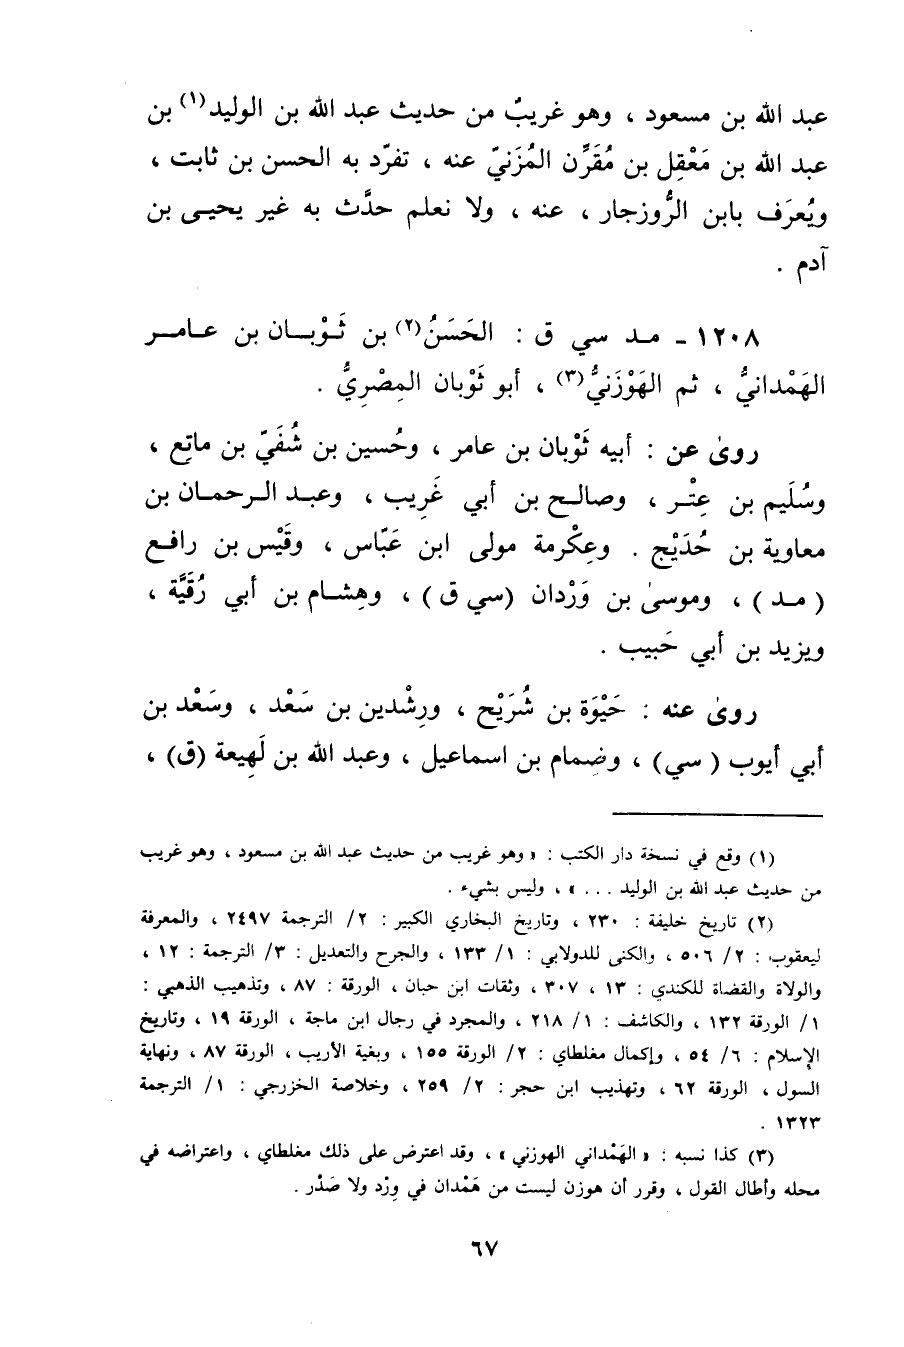 عبد الله بن مسعود ، وهو غريبٌ من حديث عبد الله بن الوليد(١) بن
عبد الله بن مَعْقِل بن مُقَرِّن المُزَنيّ عنه ، تفرّد به الحسن بن ثابت ،
ويُعرَف بابن الرُّوزجار ، عنه ، ولا نعلم حدَّث به غير يحيـى بن
آدم .
١٢٠٨ - مـد سي ق : الحَسَنُ(٢) بن ثَـوْبـان بن عامـر
الهَمْدانيُّ ، ثم الهَوْزَنيُّ(٣) ، أبو ثَوْبان المِصْريُّ .
روىٰ عن : أبيه ثَوْبان بن عامر ، وحُسين بن شُفَيّ بن ماتِع ،
وسُلَيم بن عِتْـر ، وصالـح بن أبي غَرِيب ، وعبـد الـرحمـان بن
معاوية بن حُدَيْج . وعِكْرمة مولى ابن عَبّاس ، وقَيْس بن رافـع
( مـد ) ، وموسىٰ بن وَرْدان (سي ق ) ، وهِشـام بن أبي رُقَيَّة ،
ويزيد بن أبي حَبيب .
روىٰ عنه : حَيْوَة بن شُرَيْح ، ورِشْدين بن سَعْد ، وسَعْد بن
أبي أيوب ( سي) ، وضِمام بن اسماعيل ، وعبد الله بن لَهِيعة (ق) ،
(١) وقع في نسخة دار الكتب : « وهو غريب من حديث عبد الله بن مسعود ، وهو غريب
من حديث عبد الله بن الوليد . . . » ، وليس بشيء .
(٢) تاريخ خليفة : ٢٣٠ ، وتاريخ البخاري الكبير : ٢/ الترجمة ٢٤٩٧ ، والمعرفة
ليعقوب : ٢/ ٥٠٦ ، والكنى للدولابي : ١/ ١٣٣ ، والجرح والتعديل : ٣/ الترجمة : ١٢ ،
والولاة والقضاة للكندي : ١٣ ، ٣٠٧ ، وثقات ابن حبان ، الورقة : ٨٧ ، وتذهيب الذهبي :
١/ الورقة ١٣٢ ، والكاشف : ١/ ٢١٨ ، والمجرد في رجال ابن ماجة ، الورقة ١٩ ، وتاريخ
الإسلام : ٦/ ٥٤ ، وإكمال مغلطاي : ٢/ الورقة ١٥٥ ، وبغية الأريب ، الورقة ٨٧ ، ونهاية
السول ، الورقة ٦٢ ، وتهذيب ابن حجر : ٢/ ٢٥٩ ، وخلاصة الخزرجي : ١/ الترجمة
١٣٢٣ .
(٣) كذا نسبه : « الهَمْداني الهوزني » ، وقد اعترض على ذلك مغلطاي ، واعتراضه في
محله وأطال القول ، وقرر أن هوزن ليست من هَمْدان في وِرْد ولا صَدْر .
٦٧